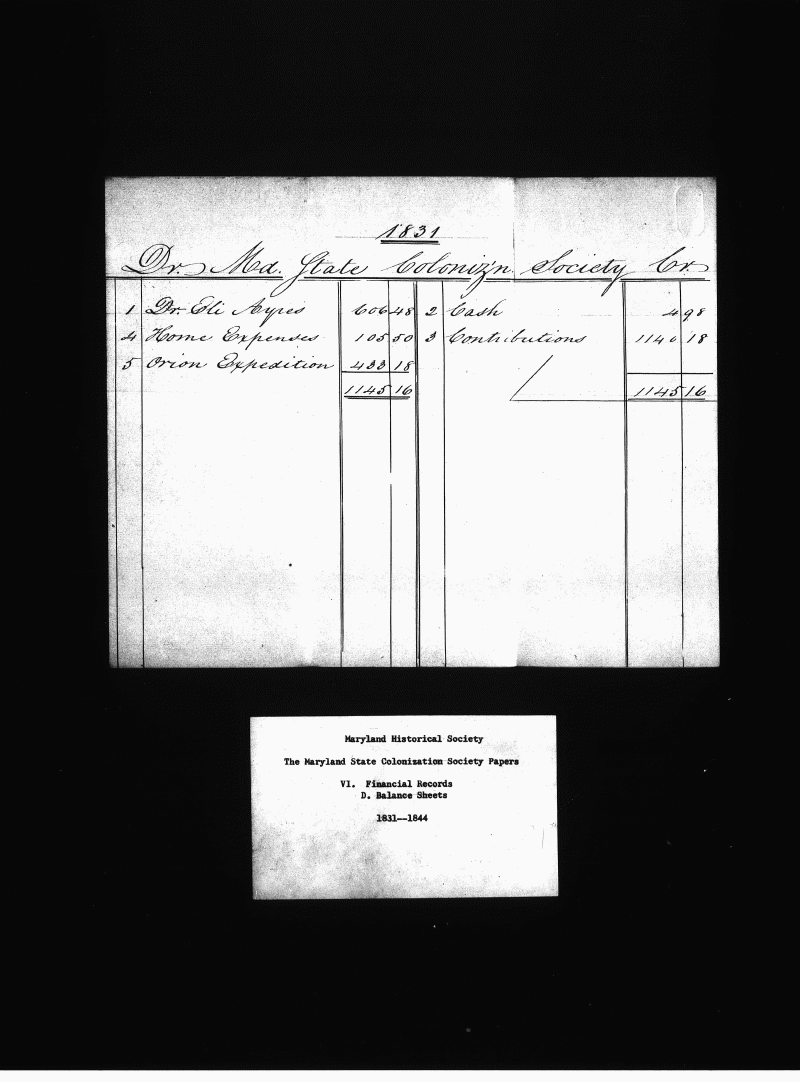 1831
Dr. Md. State Coloniz'n Society Cr.
1 Dr. Eli Ayres 606 48 2 Cash 4 98
4 Home Expenses 105 50 3 Contributions 1140 18
5 Orion Expedition 433 18
1145 16 1145 16
Maryland Historical Society
The Maryland State Colonization Society Papers
VI. Financial Records
D. Balance Sheets
1831--1844